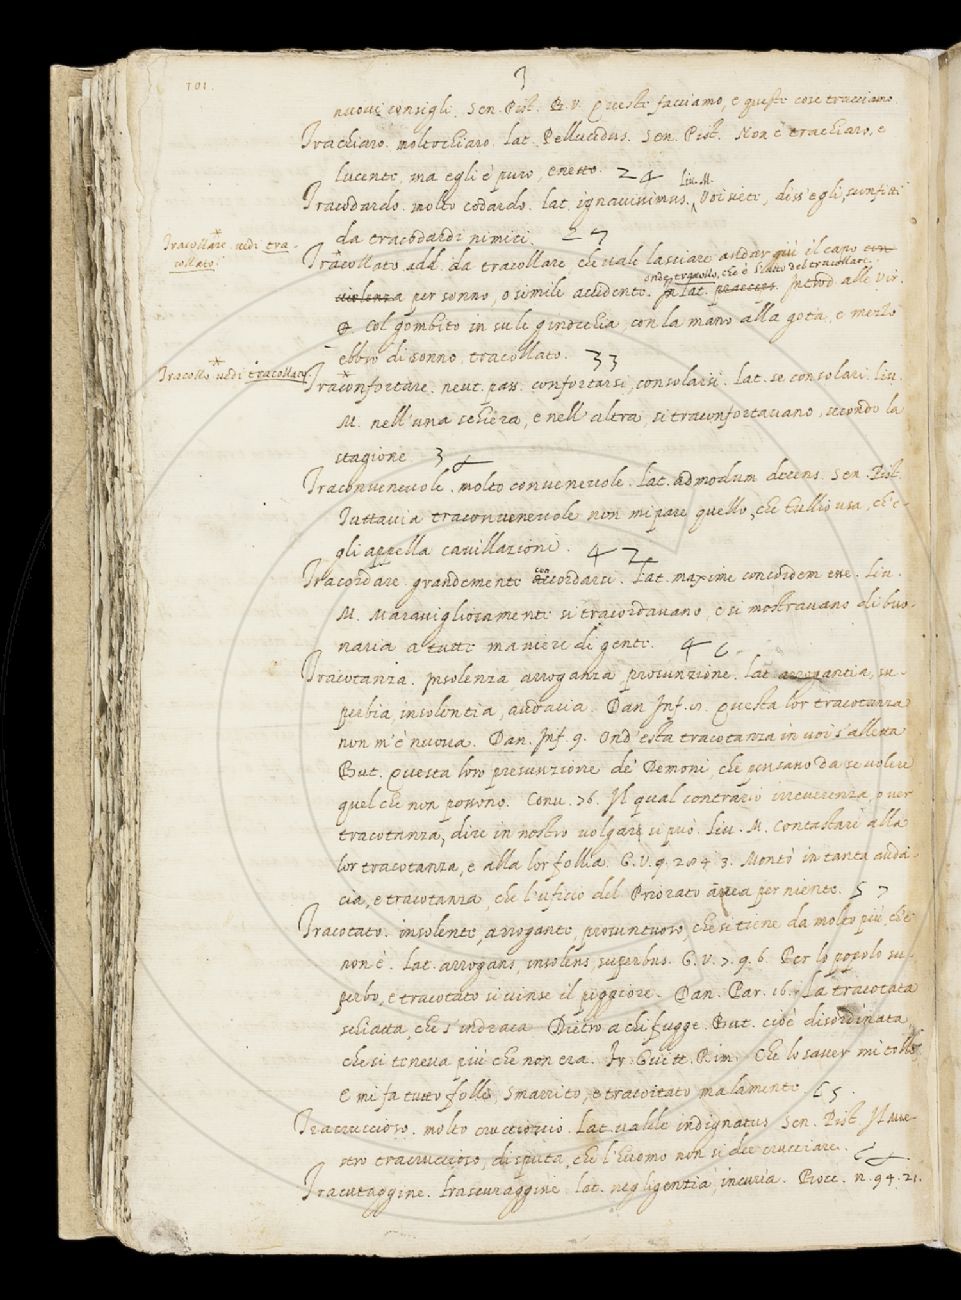 101.
3
nuovi consigli. Sen. Pist. B. V. Queste facciamo, e queste cose tracciamo.
Trachiaro. molto chiaro. Lat. Pellucidus. Sen. Pist. Non è trachiaro, e
lucente, ma egli è puro, e netto. 24
Liv. M.
Tracodardo. molto codardo. lat. ignavissimus. Voi siete, diss'egli, sconfitti
da tracodardi nimici. 27
Tracollare vedi tra-
collato.
Tracollato add. da tracollare, che vale lasciare andar giù il capo con
onde tracollo, che è l'atto del tracollare.
violenza per sonno, o simile accidente. In lat. praeceps. Introd. alle Vir.
& Col gombito in su le ginocchia, con la mano alla gota, e mezzo
ebbro di sonno, tracollato. 33
Tracollo vedi tracollato.
Traconfortare. neut. pass. confortarsi, consolarsi. Lat. se consolari. Liv.
M. nell'una schiera, e nell'altra, si traconfortavano, secondo la
stagione 34
Traconvenevole. molto convenevole. Lat. admodum decens. Sen. Pist.
Tuttavia traconvenevole non mi pare quello, che Tullio usa, ch'e-
gli appella cavillazioni. 42
con
Tracordare. grandemente accordarsi. Lat. maxime concordem esse. Liv.
M. Maravigliosamente si tracordavano, e si mostravano di buo-
naria a tutte maniere di gente. 46
Tracotanza. Insolenza, arroganza, prosunzione. Lat. arrogantia, su-
perbia, insolentia, audacia. Dan. Inf. 8. Questa lor tracotanza
non m'è nuova. Dan. Inf. 9. Ond'esta tracotanza in voi s'alletta
But. Questa loro presunzione de' Demoni, che pensano da se volere
quel che non possono. Conv. 76. Il qual contrario irreverenza, o ver
tracotanza, dire in nostro volgare si può. Liv. M. Contastare alla
lor tracotanza, e alla lor follia. G. V. 9. 284. 3. Montò in tanta auda-
cia, e tracotanza, che l'uficio del Priorato avea per niente. 57
Tracotato. insolente, arrogante, prosuntuoso, che si tiene da molto più, che
non è. Lat. arrogans, insolens, superbus. G. V. 7. 9. 6. Per lo popolo su-
perbo, e tracotato si vinse il piggiore. Dan. Par. 16. La tracotata
schiatta, che s'indraca Dietro a chi fugge. But. cioè disordinata,
che si teneva più che non era. Fr. Guitt. Rim. Che lo saver mi tolle,
E mi fa tutto folle, Smarrito, e tracoitato malamente 65.
Tracruccioso. molto cruccioso. Lat. valde indignatus. Sen. Pist. Il nue-
stro tracruccioso, disputa, che l'huomo non si dee crucciare. 68
Tracutaggine. trascuraggine. lat. negligentia, incuria. Bocc. n. 94. 21.